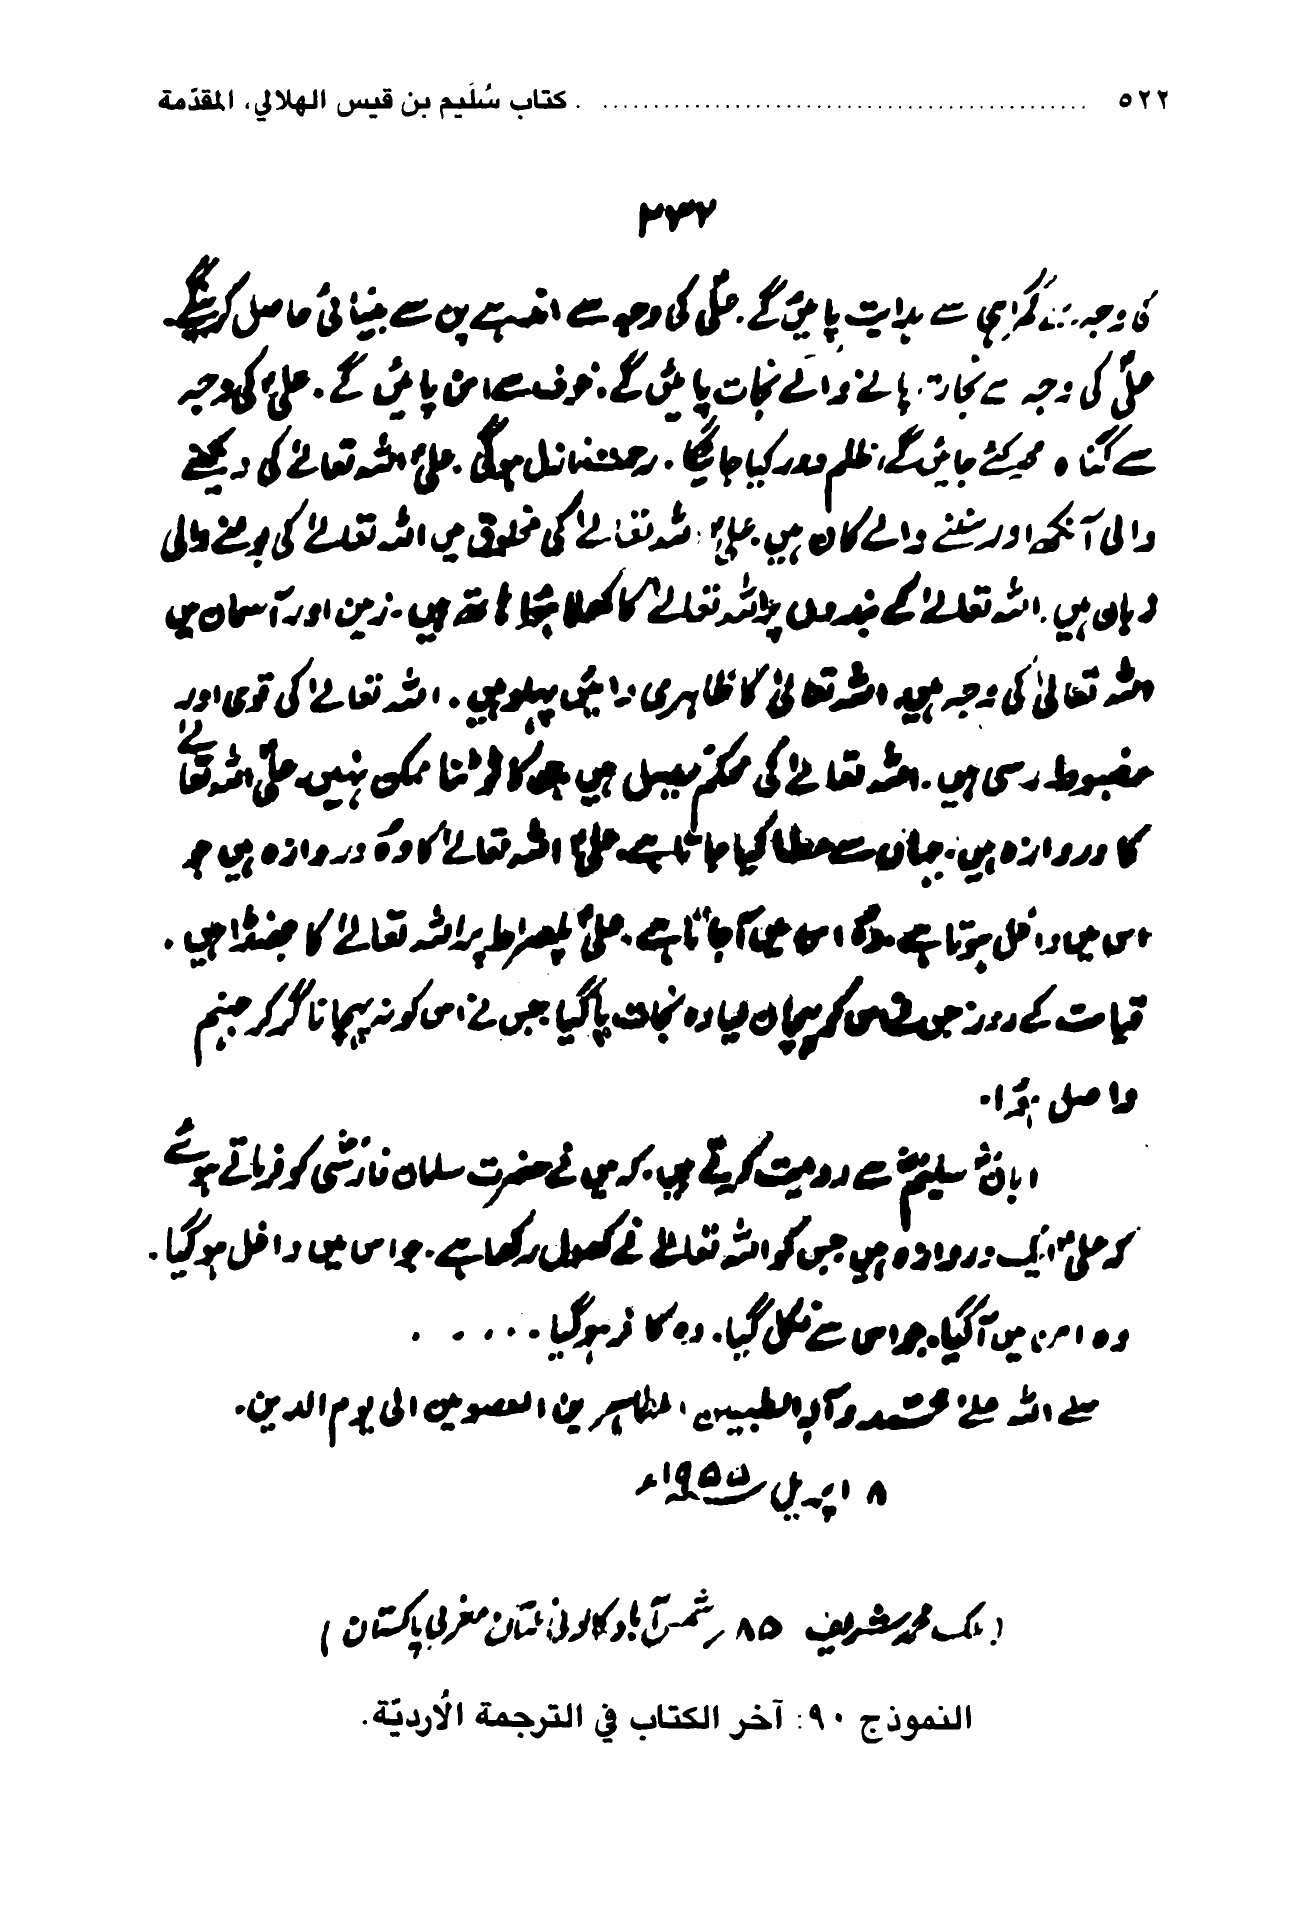 ٥٢٢ ........ . كتاب سُلَيم بن قيس الهلالي، المقدّمة
٢٣٢
کی وجہ سے گمراہی سے ہدایت پائیں گے۔ علیؑ کی وجہ سے اندھے پن سے بینائی حاصل کرینگے۔
علیؑ کی وجہ سے نجات پانے والے نجات پائیں گے۔ خوف سے امن پائیں گے۔ علیؑ کی وجہ
سے گناہ محو کئے جائیں گے، ظلم دور کیا جائیگا۔ رحمت نازل ہوگی۔ علیؑ اللہ تعالےٰ کی دیکھنے
والی آنکھ اور سننے والے کان ہیں۔ علیؑ اللہ تعالےٰ کی مخلوق میں اللہ تعالےٰ کی بولنے والی
زبان ہیں۔ اللہ تعالےٰ کے بندوں پر اللہ تعالےٰ کا کھلا ہوا ہاتھ ہیں۔ زمین اور آسمان میں
اللہ تعالیٰ کی وجہ ہیں۔ اللہ تعالیٰ کا ظاہری دائیں پہلو ہیں۔ اللہ تعالےٰ کی قوی اور
مضبوط رسی ہیں۔ اللہ تعالےٰ کی محکم سبیل ہیں جس کا ٹوٹنا ممکن نہیں۔ علیؑ اللہ تعالےٰ
کا دروازہ ہیں۔ جہاں سے عطا کیا جاتا ہے۔ علیؑ اللہ تعالےٰ کا وہ دروازہ ہیں جو
اس میں داخل ہوتا ہے۔ وہ امن میں آجاتا ہے۔ علیؑ پلصراط پر اللہ تعالےٰ کا جھنڈا ہیں۔
قیامت کے روز جس نے اس کو پہچان لیا وہ نجات پاگیا جس نے اس کو نہ پہچانا گر کر جہنم
واصل ہوا۔
ابانؓ سلیمؓ سے روایت کرتے ہیں۔ کہ میں نے حضرت سلمان فارسیؓ کو فرماتے ہوئے
کہ علیؑ ایک دروازہ ہیں جس کو اللہ تعالےٰ نے کھول رکھا ہے۔ جو اس میں داخل ہوگیا۔
وہ امن میں آگیا۔ جو اس سے نکل گیا۔ وہ کافر ہوگیا۔ . . . . .
صلے اللہ علےٰ محمد وآلہ الطیبین الطاہرین المعصومین الی یوم الدین۔
٨ اپریل
(ملک محمد شریف ٨٥ رشمس آباد کالونی ملتان مغربی پاکستان)
النموذج ٩٠: آخر الكتاب في الترجمة الأُرديّة.